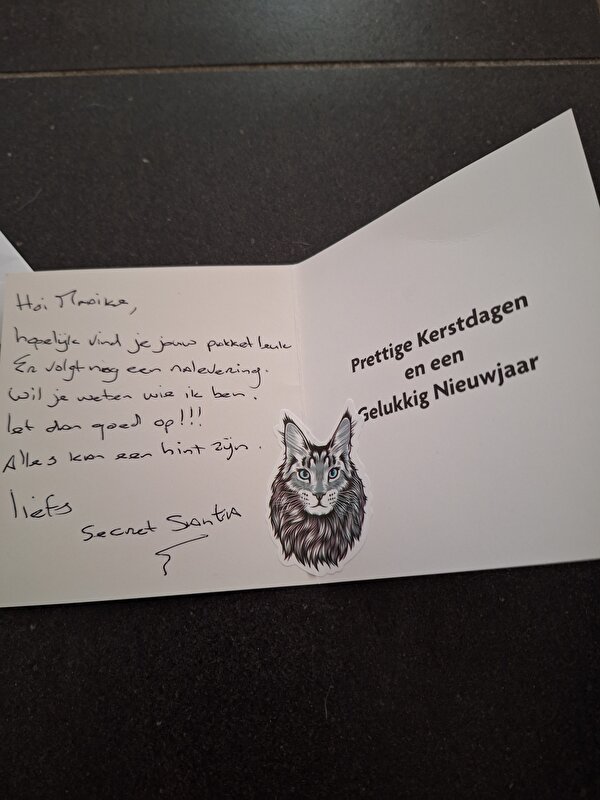 Hoi Maaike,
hopelijk vind je jouw pakket leuk
Er volgt nog een nalevering.
wil je weten wie ik ben.
let dan goed op!!!
Alles kan een hint zijn.
liefs
Secret Santa
Prettige Kerstdagen
en een
Gelukkig Nieuwjaar